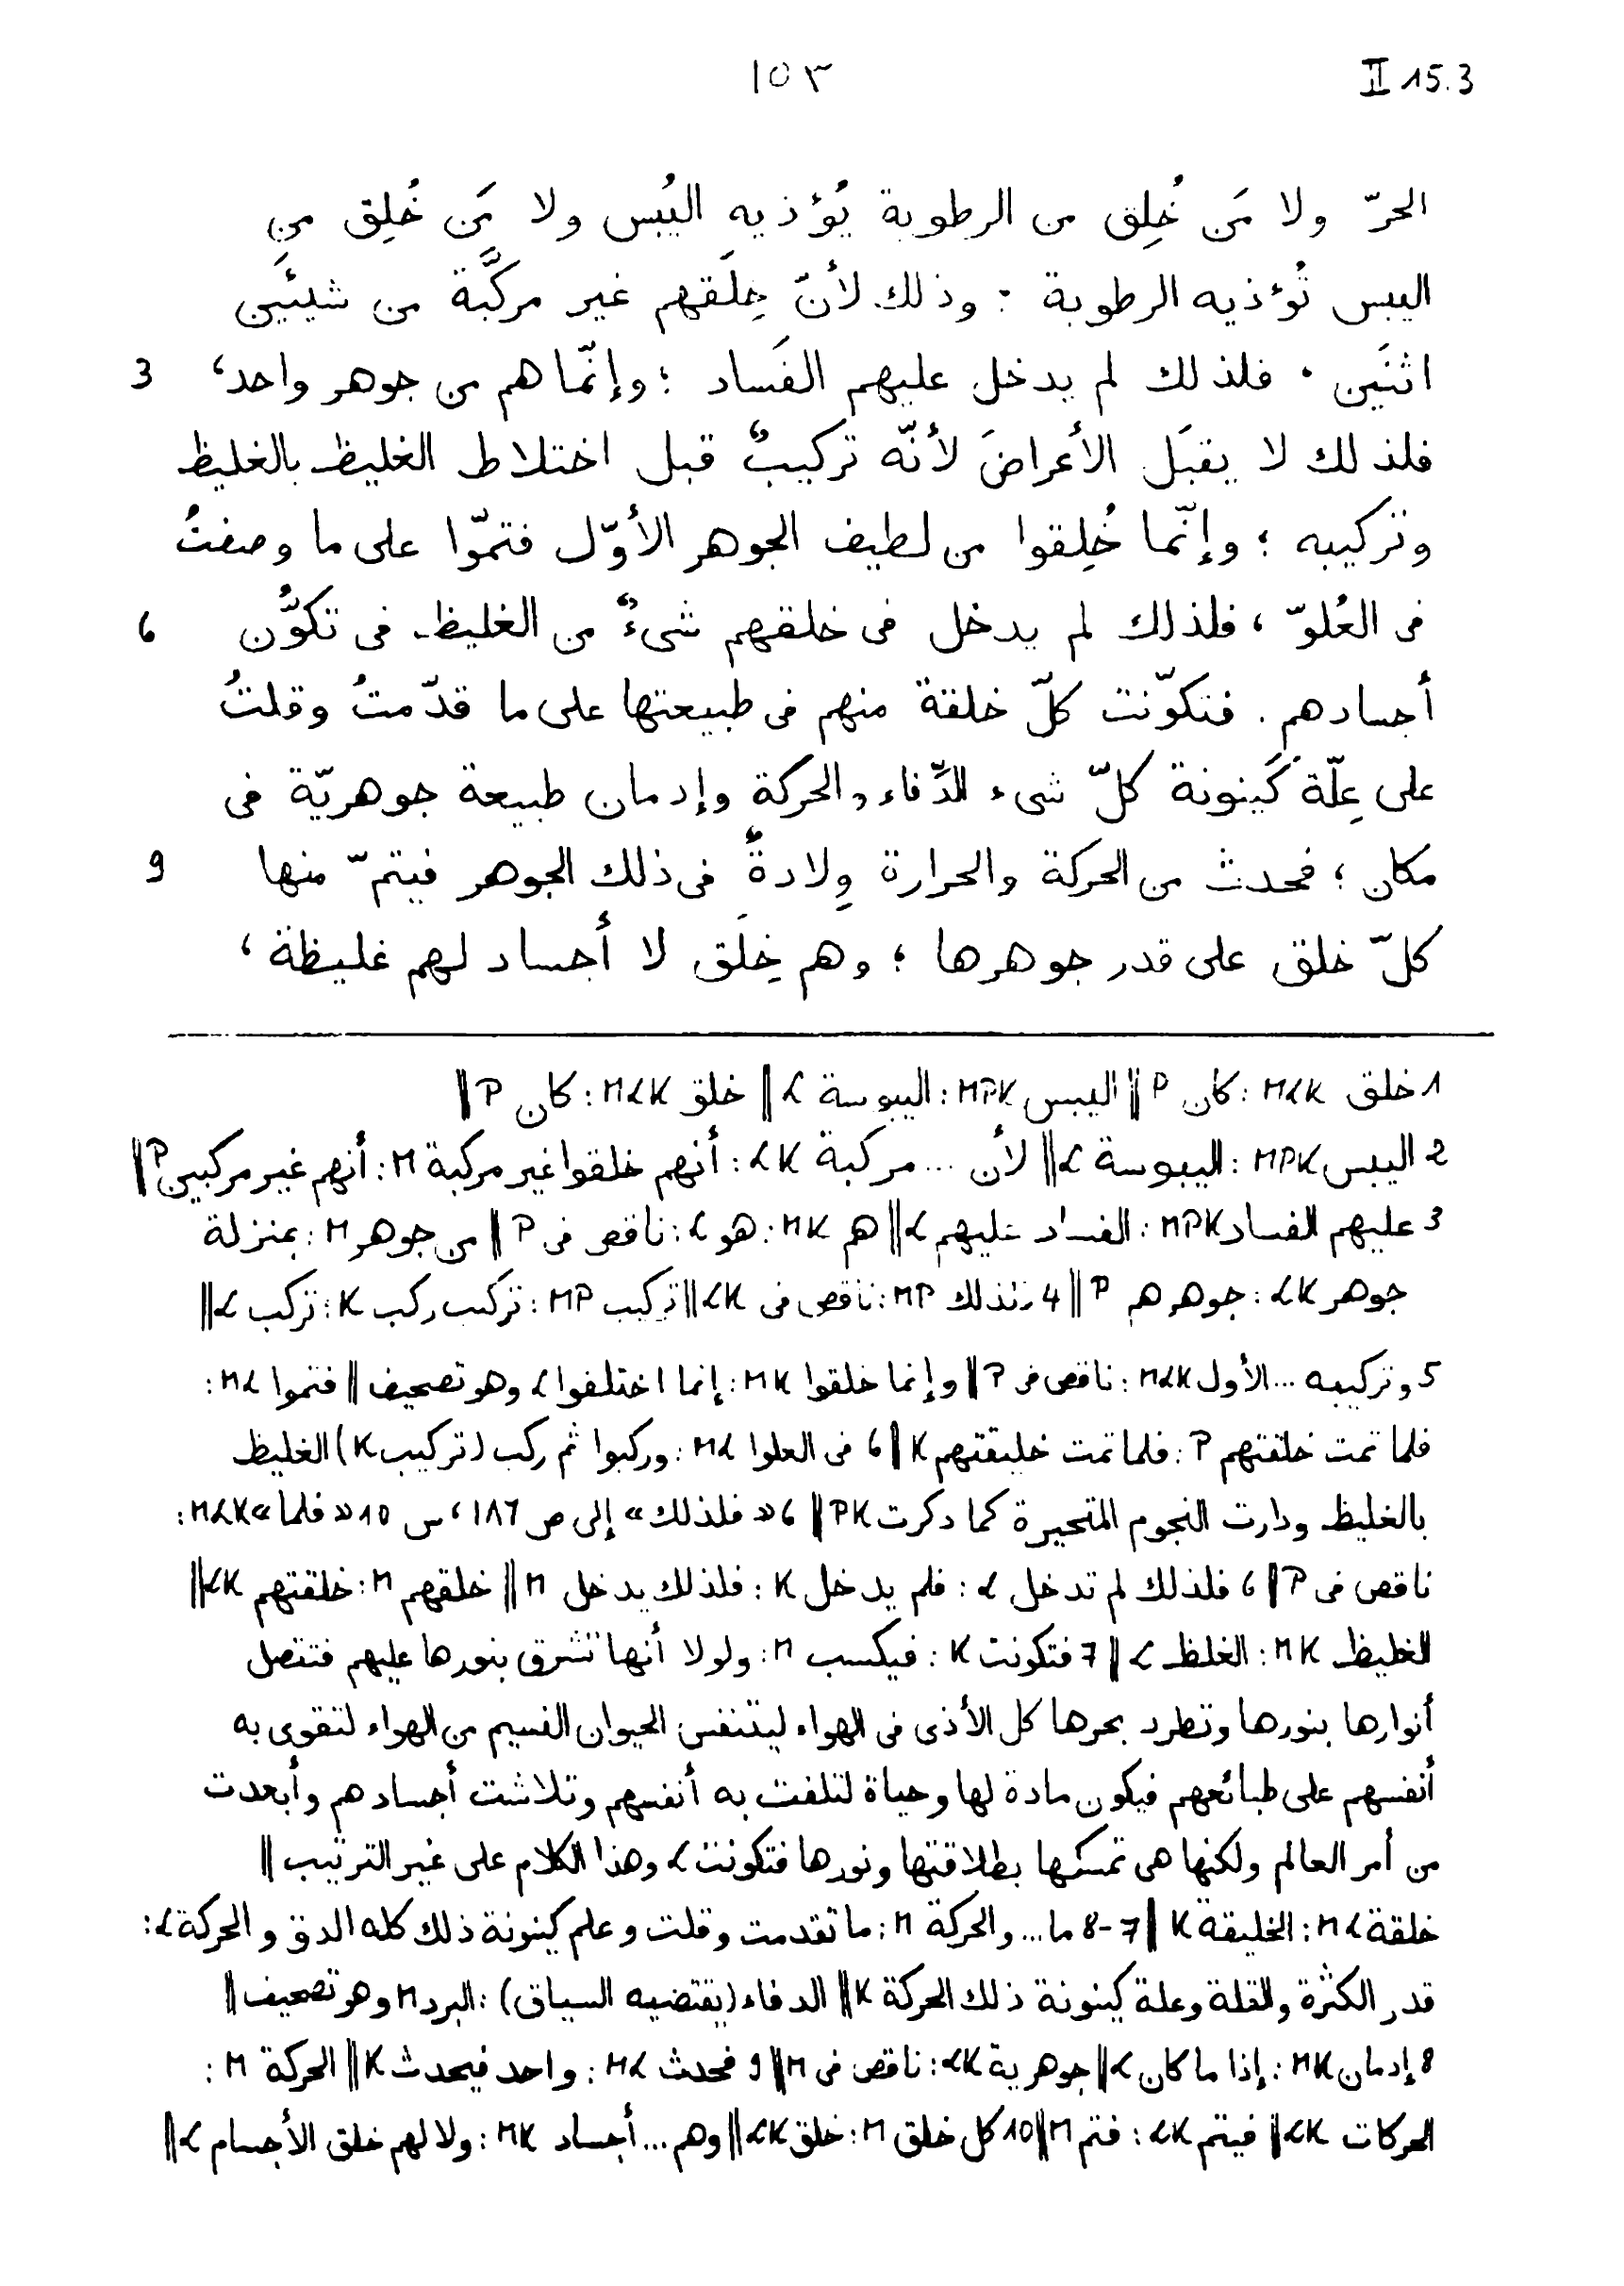 ١٥٣ II 15.3
الحرّ ولا مَن خُلِق من الرطوبة يُؤذيه اليُبس ولا مَن خُلِق مِن
اليبس تُؤذيه الرطوبة ؛ وذلك لأنّ خِلَقهم غير مركَّبة من شيئَين
اثنَين . فلذلك لم يدخل عليهم الفَساد ؛ وإنّما هم من جوهر واحد، 3
فلذلك لا يقبَل الأعراضَ لأنّه تركيبٌ قبل اختلاط الغليظ بالغليظ
وتركيبه ؛ وإنّما خُلِقوا من لطيف الجوهر الأوّل فتمّوا على ما وصفتُ
فى العُلوّ ، فلذلك لم يدخل فى خلقهم شىءٌ من الغليظ فى تكوُّن 6
أجسادهم . فتكوّنت كلّ خلقة منهم فى طبيعتها على ما قدّمتُ وقلتُ
على عِلّة كَينونة كلّ شىء الدَّفاء والحركة وإدمان طبيعة جوهريّة فى
مكان ؛ فحدث من الحركة والحرارة وِلادةٌ فى ذلك الجوهر فيتمّ منها 9
كلّ خلق على قدر جوهرها ؛ وهم خِلَق لا أجساد لهم غليظة ،
1 خلق MLK : كان P || اليبس MPK : اليبوسة L || خلق MLK : كان P ||
2 اليبس MPK : اليبوسة L || لأن ... مركبة LK : أنهم خلقوا غير مركبة M : أنهم غير مركبين P ||
3 عليهم الفساد MPK : الفساد عليهم L || هم MK : هو L : ناقص فى P || من جوهر M : بمنزلة
جوهر LK : جوهرهم P || 4 فلذلك MP : ناقص فى LK || تركيب MP : تركيب ركب K : تركب L ||
5 وتركيبه ... الأول MLK : ناقص فى P || وإنما خلقوا MK : إنما اختلفوا L وهو تصحيف || فتموا ML :
فلما تمت خلقتهم P : فلما تمت خليقتهم K || 6 فى العلوا ML : وركبوا ثم ركب (تركيب K) الغليظ
بالغليظ ودارت النجوم المتحيرة كما ذكرت PK || 6 «فلذلك» إلى ص ١٨٦ ، س 10 «فلما» MLK :
ناقص فى P || 6 فلذلك لم تدخل L : فلم يدخل K : فلذلك يدخل M || خلقهم M : خلقتهم LK ||
الغليظ MK : الغلظ L || 7 فتكونت K : فيكسب M : ولولا أنها تشرق بنورها عليهم فتتصل
أنوارها بنورها وتطرد بحرها كل الأذى فى الهواء ليتنفس الحيوان النسيم من الهواء لتقوى به
أنفسهم على طبائعهم فيكون مادة لها وحياة لتلفت به أنفسهم وتلاشت أجسادهم وأبعدت
من أمر العالم ولكنها هى تمسكها بطلاقتها ونورها فتكونت L وهذا الكلام على غير الترتيب ||
خلقة ML : الخليقة K || 7-8 ما ... والحركة M : ما تقدمت وقلت وعلم كينونة ذلك كله الدق والحركة L :
قدر الكثرة والقلة وعلة كينونة ذلك الحركة K || الدفاء (يقتضيه السياق) : البرد M وهو تصحيف ||
8 إدمان MK : إذا ما كان L || جوهرية LK : ناقص فى M || 9 فحدث ML : واحد فيحدث K || الحركة M :
الحركات LK || فيتم LK : فتم M || 10 كل خلق M : خلق LK || وهم ... أجساد MK : ولا لهم خلق الأجسام L ||